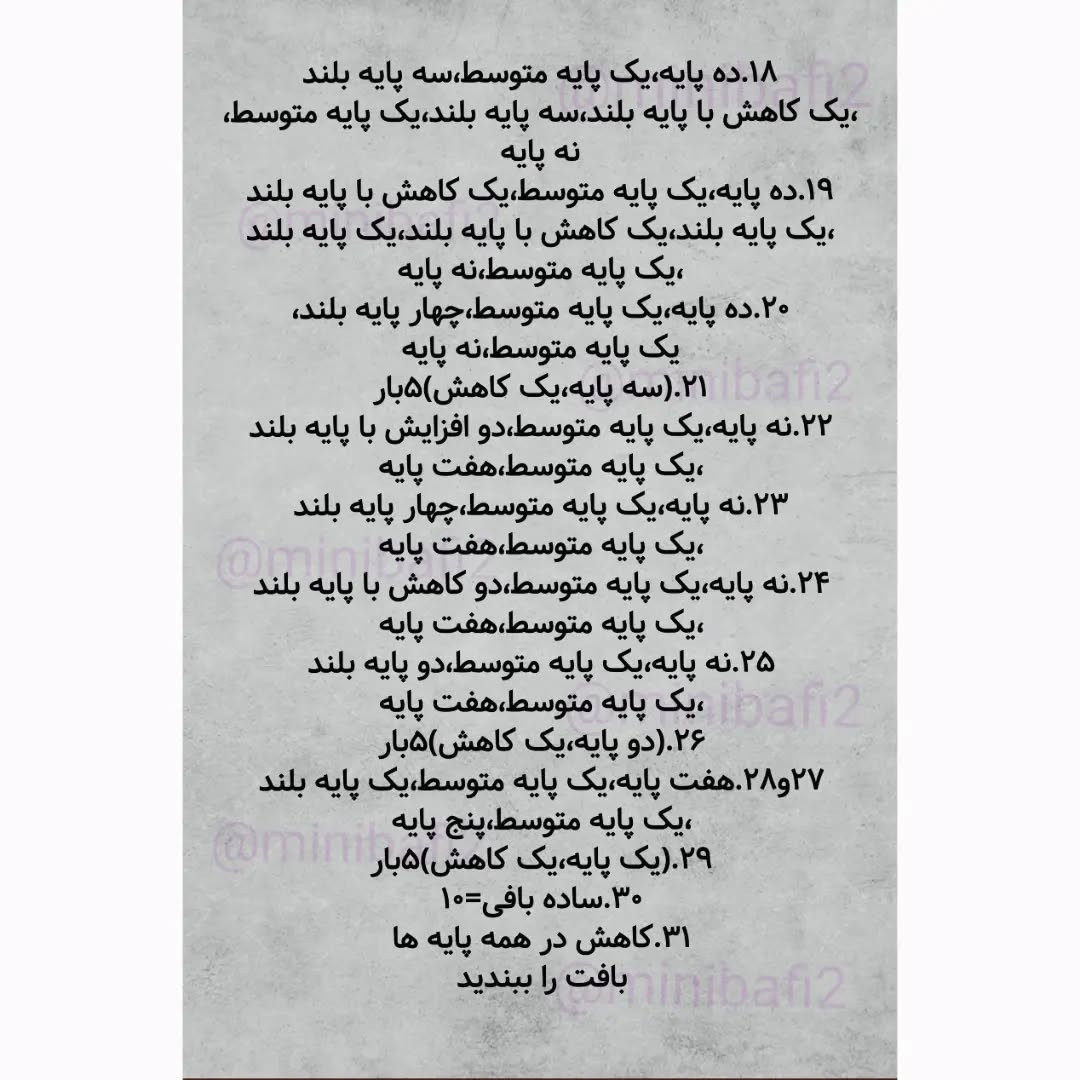 ۱۸.ده پایه،یک پایه متوسط،سه پایه بلند
،یک کاهش با پایه بلند،سه پایه بلند،یک پایه متوسط،
نه پایه
۱۹.ده پایه،یک پایه متوسط،یک کاهش با پایه بلند
،یک پایه بلند،یک کاهش با پایه بلند،یک پایه بلند
،یک پایه متوسط،نه پایه
۲۰.ده پایه،یک پایه متوسط،چهار پایه بلند،
یک پایه متوسط،نه پایه
۲۱.(سه پایه،یک کاهش)۵بار
۲۲.نه پایه،یک پایه متوسط،دو افزایش با پایه بلند
،یک پایه متوسط،هفت پایه
۲۳.نه پایه،یک پایه متوسط،چهار پایه بلند
،یک پایه متوسط،هفت پایه
۲۴.نه پایه،یک پایه متوسط،دو کاهش با پایه بلند
،یک پایه متوسط،هفت پایه
۲۵.نه پایه،یک پایه متوسط،دو پایه بلند
،یک پایه متوسط،هفت پایه
۲۶.(دو پایه،یک کاهش)۵بار
۲۷و۲۸.هفت پایه،یک پایه متوسط،یک پایه بلند
،یک پایه متوسط،پنج پایه
۲۹.(یک پایه،یک کاهش)۵بار
۳۰.ساده بافی=۱۰
۳۱.کاهش در همه پایه ها
بافت را ببندید
@minibafi2
@minibafi2
@minibafi2
@minibafi2
@minibafi2
@minibafi2
@minibafi2